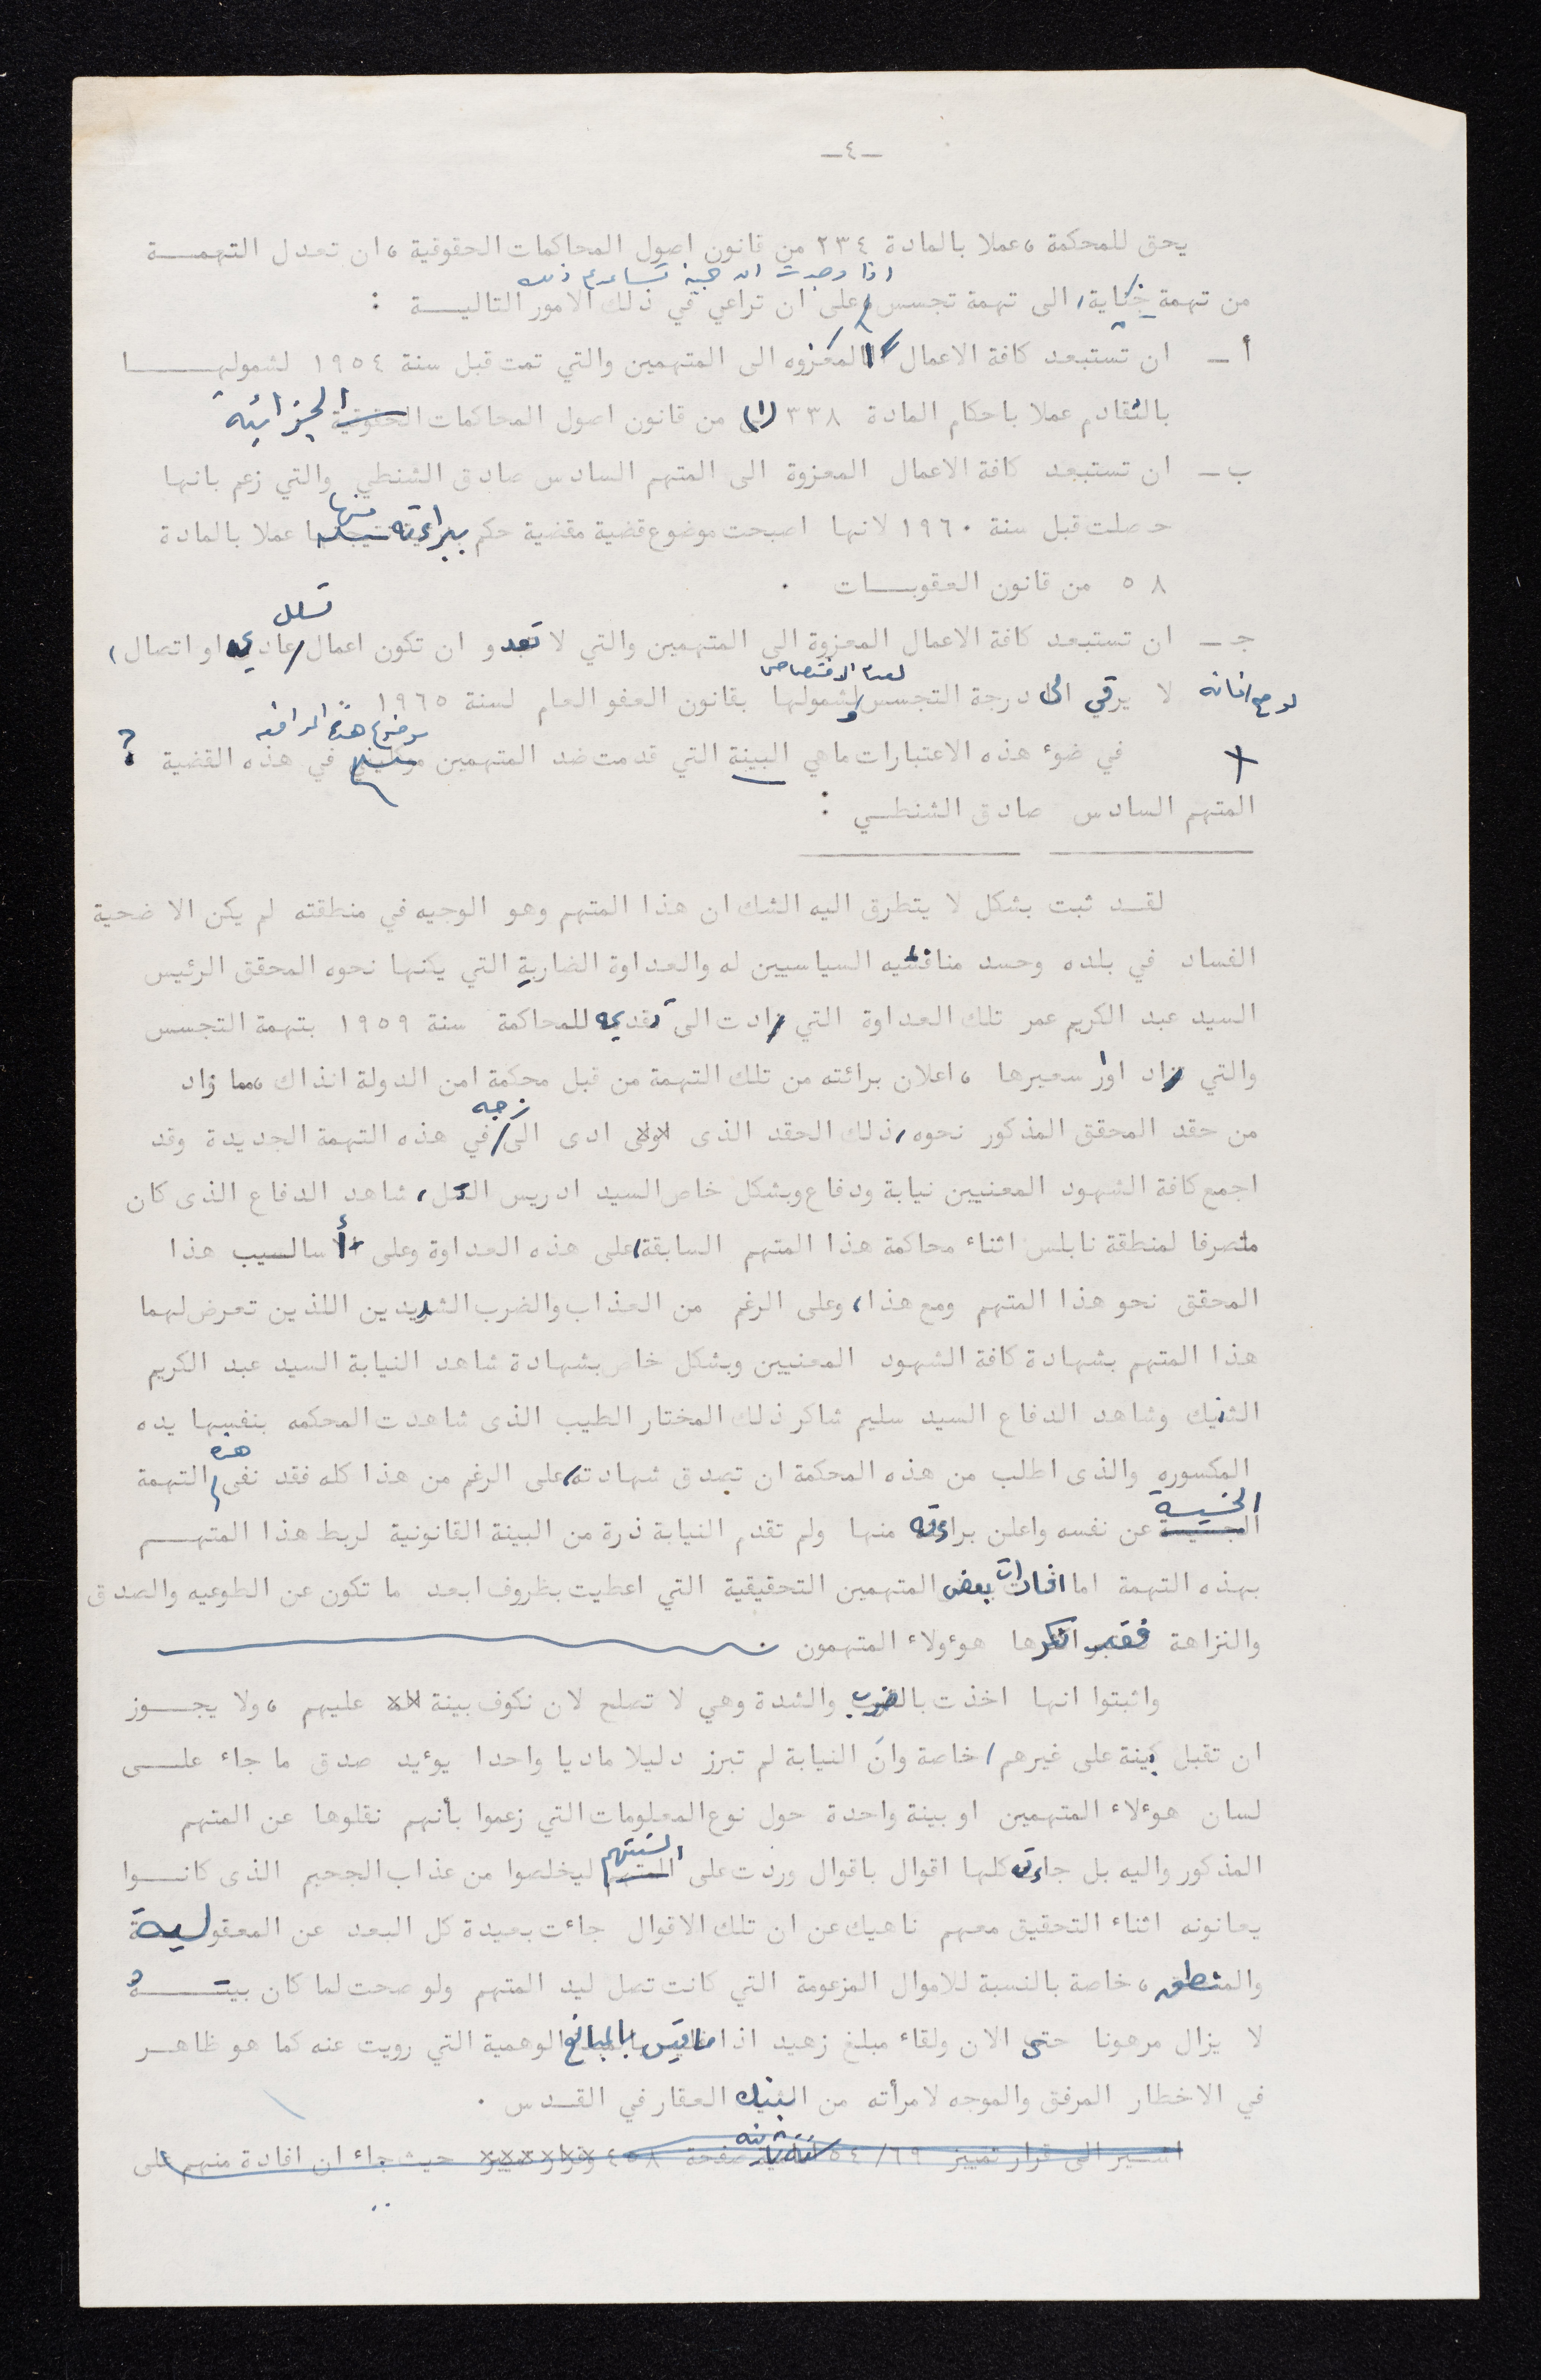 -٤-
يحق للمحكمة ، عملا بالمادة ٢٣٤ من قانون اصول المحاكمات الحقوقية ، ان تعدل التهمــة
اذا وجدت ان البينة تساعدم ذلك
من تهمة خيانة ، الى تهمة تجسس وعلى ان تراعي في ذلك الامور التاليــة :
أ ـ ان تستبعد كافة الاعمال المعزوه الى المتهمين والتي تمت قبل سنة ١٩٥٤ لشمولهـــا
بالتقادم عملا باحكام المادة ٣٣٨ (١) من قانون اصول المحاكمات الحقوقية الجزائية
ب ـ ان تستبعد كافة الاعمال المعزوة الى المتهم السادس صادق الشنطي والتي زعم بانها
منها
حصلت قبل سنة ١٩٦٠ لانها اصبحت موضوع قضية مقضية حكم ببراءته عملا بالمادة
٥٨ من قانون العقوبــات .
تسلل
جـ ـ ان تستبعد كافة الاعمال المعزوة الى المتهمين والتي لا تعدو ان تكون اعمال عادي او اتصال ،
لعدم الاختصاص
لا يرقى الى درجة التجسس ولشمولها بقانون العفو العام لسنة ١٩٦٥
موضوع هذه المرافعه
في ضوء هذه الاعتبارات ماهي البينة التي قدمت ضد المتهمين موكليني في هذه القضية ؟
المتهم السادس صادق الشنطــي :
لقــد ثبت بشكل لا يتطرق اليه الشك ان هذا المتهم وهو الوجيه في منطقته لم يكن الا ضحية
الفساد في بلده وحسد منافسيه السياسيين له والعداوة الضارية التي يكنها نحوه المحقق الرئيس
السيد عبد الكريم عمر تلك العداوة التي ادت الى تقديمه للمحاكمة سنة ١٩٥٩ بتهمة التجسس
والتي زاد اوار سعيرها ، اعلان برائته من تلك التهمة من قبل محكمة امن الدولة انذاك ، مما زاد
زجه
من حقد المحقق المذكور نحوه ، ذلك الحقد الذى ادى الى في هذه التهمة الجديدة وقد
اجمع كافة الشهود المعنيين نيابة ودفاع وبشكل خاص السيد ادريس التل ، شاهد الدفاع الذى كان
متصرفا لمنطقة نابلس اثناء محاكمة هذا المتهم السابقة ، على هذه العداوة وعلى أساليب هذا
المحقق نحو هذا المتهم ومع هذا ، وعلى الرغم من العذاب والضرب الشديدين اللذين تعرض لهما
هذا المتهم بشهادة كافة الشهود المعنيين وبشكل خاص بشهادة شاهد النيابة السيد عبد الكريم
الشنيك وشاهد الدفاع السيد سليم شاكر ذلك المختار الطيب الذى شاهدت المحكمه بنفسها يده
هذه
المكسوره والذى اطلب من هذه المحكمة ان تصدق شهادته ، على الرغم من هذا كله فقد نفى التهمة
الخسيسة
عن نفسه واعلن براءته منها ولم تقدم النيابة ذرة من البينة القانونية لربط هذا المتهــم
بهذه التهمة اما افادات بعض المتهمين التحقيقية التي اعطيت بظروف ابعد ما تكون عن الطوعيه والصدق
والنزاهة فقد انكرها هوءولاء المتهمون
واثبتوا انها اخذت بالضرب والشدة وهي لا تصلح لان نكوف بينة عليهم ، ولا يجــوز
ان تقبل بينة على غيرهم / خاصة وان النيابة لم تبرز دليلا ماديا واحدا يوءيد صدق ما جاء علــى
لسان هوءلاء المتهمين او بينة واحدة حول نوع المعلومات التي زعموا بأنهم نقلوها عن المتهم
السنتهم
المذكور واليه بل جاءت كلها اقوال باقوال وردت على المتهم ليخلصوا من عذاب الجحيم الذى كانــوا
يعانونه اثناء التحقيق معهم ناهيك عن ان تلك الاقوال جاءت بعيدة كل البعد عن المعقولية
والمنطق ، خاصة بالنسبة للاموال المزعومة التي كانت تصل ليد المتهم ولو صحت لما كان بيتــه
لا يزال مرهونا حتى الان ولقاء مبلغ زهيد اذا ما قيس بالمبالغ الوهمية التي رويت عنه كما هو ظاهــر
في الاخطار المرفق والموجه لامرأته من البنك العقار في القــدس .
اشــير الى قرار تمييز ٥٤/٦٩ صفحة ٤٥٨ حيث جاء ان افادة منهم على